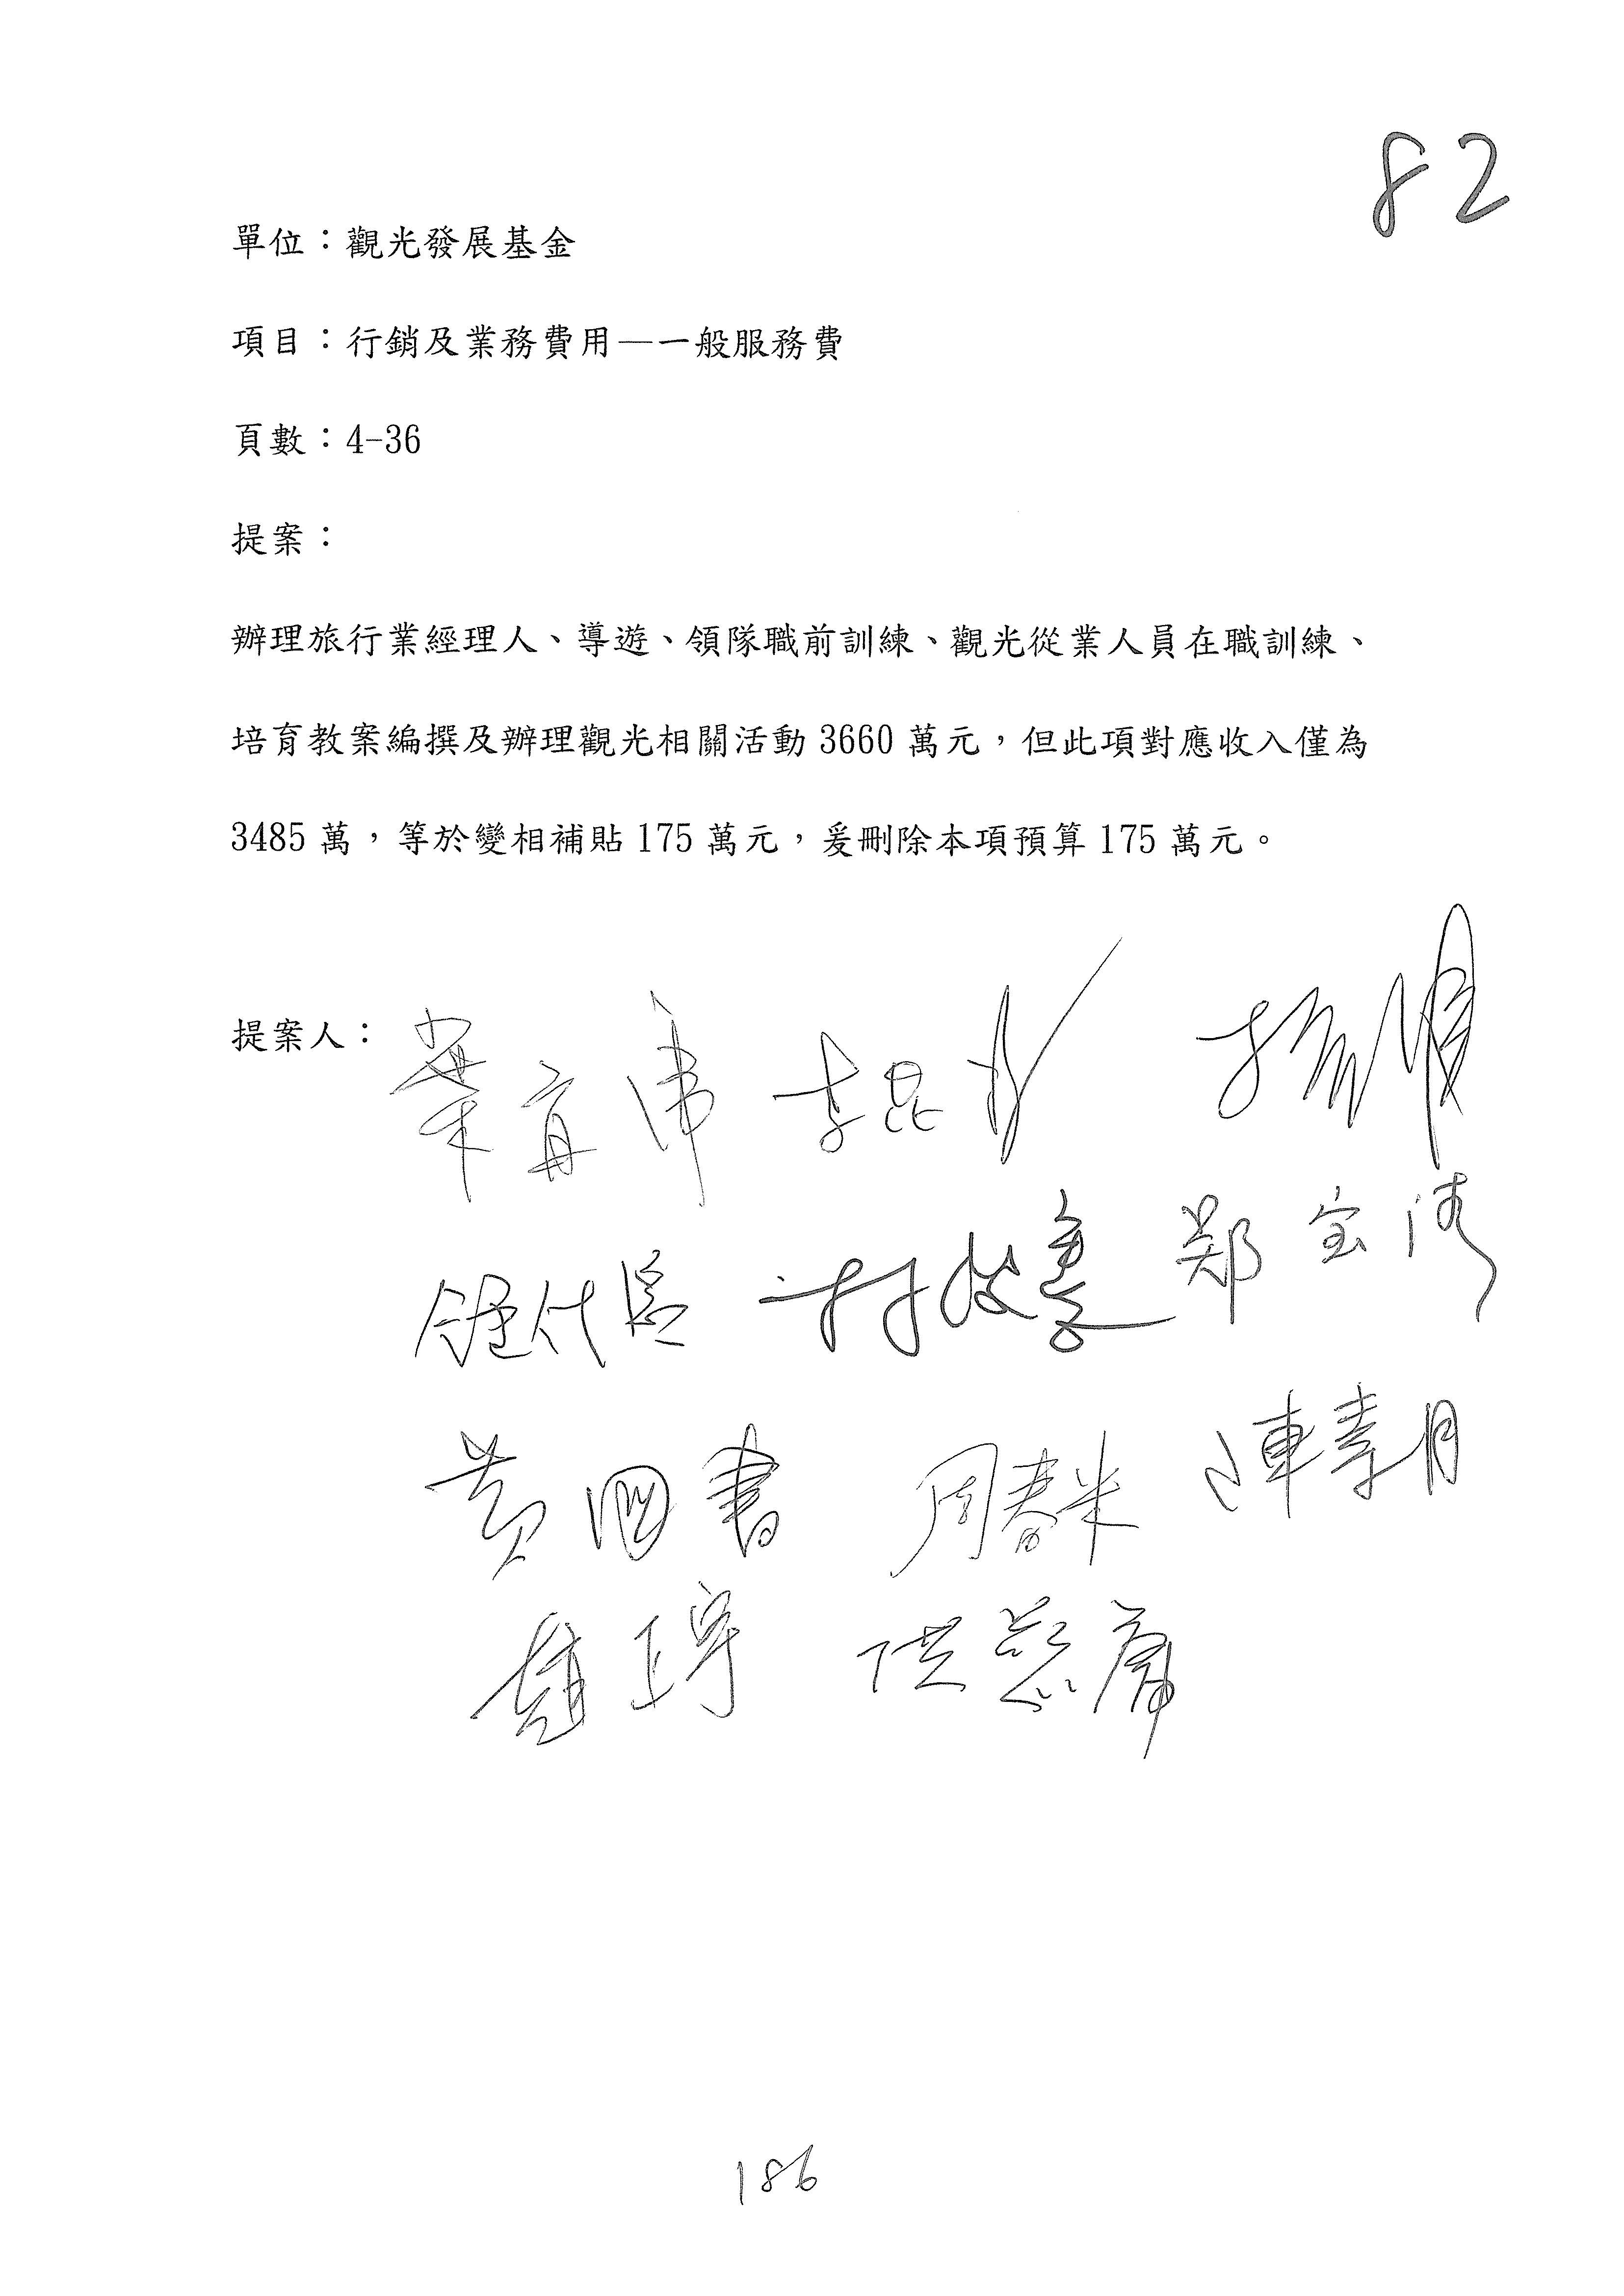 82
單位：觀光發展基金
項目：行銷及業務費用—一般服務費
頁數：4-36
提案：
辦理旅行業經理人、導遊、領隊職前訓練、觀光從業人員在職訓練、
培育教案編撰及辦理觀光相關活動 3660 萬元，但此項對應收入僅為
3485 萬，等於變相補貼 175 萬元，爰刪除本項預算 175 萬元。
提案人：
葉宜津 李昆澤
鄭宝清
黃國書 周春米 陳素月
趙正宇 洪慈庸
186